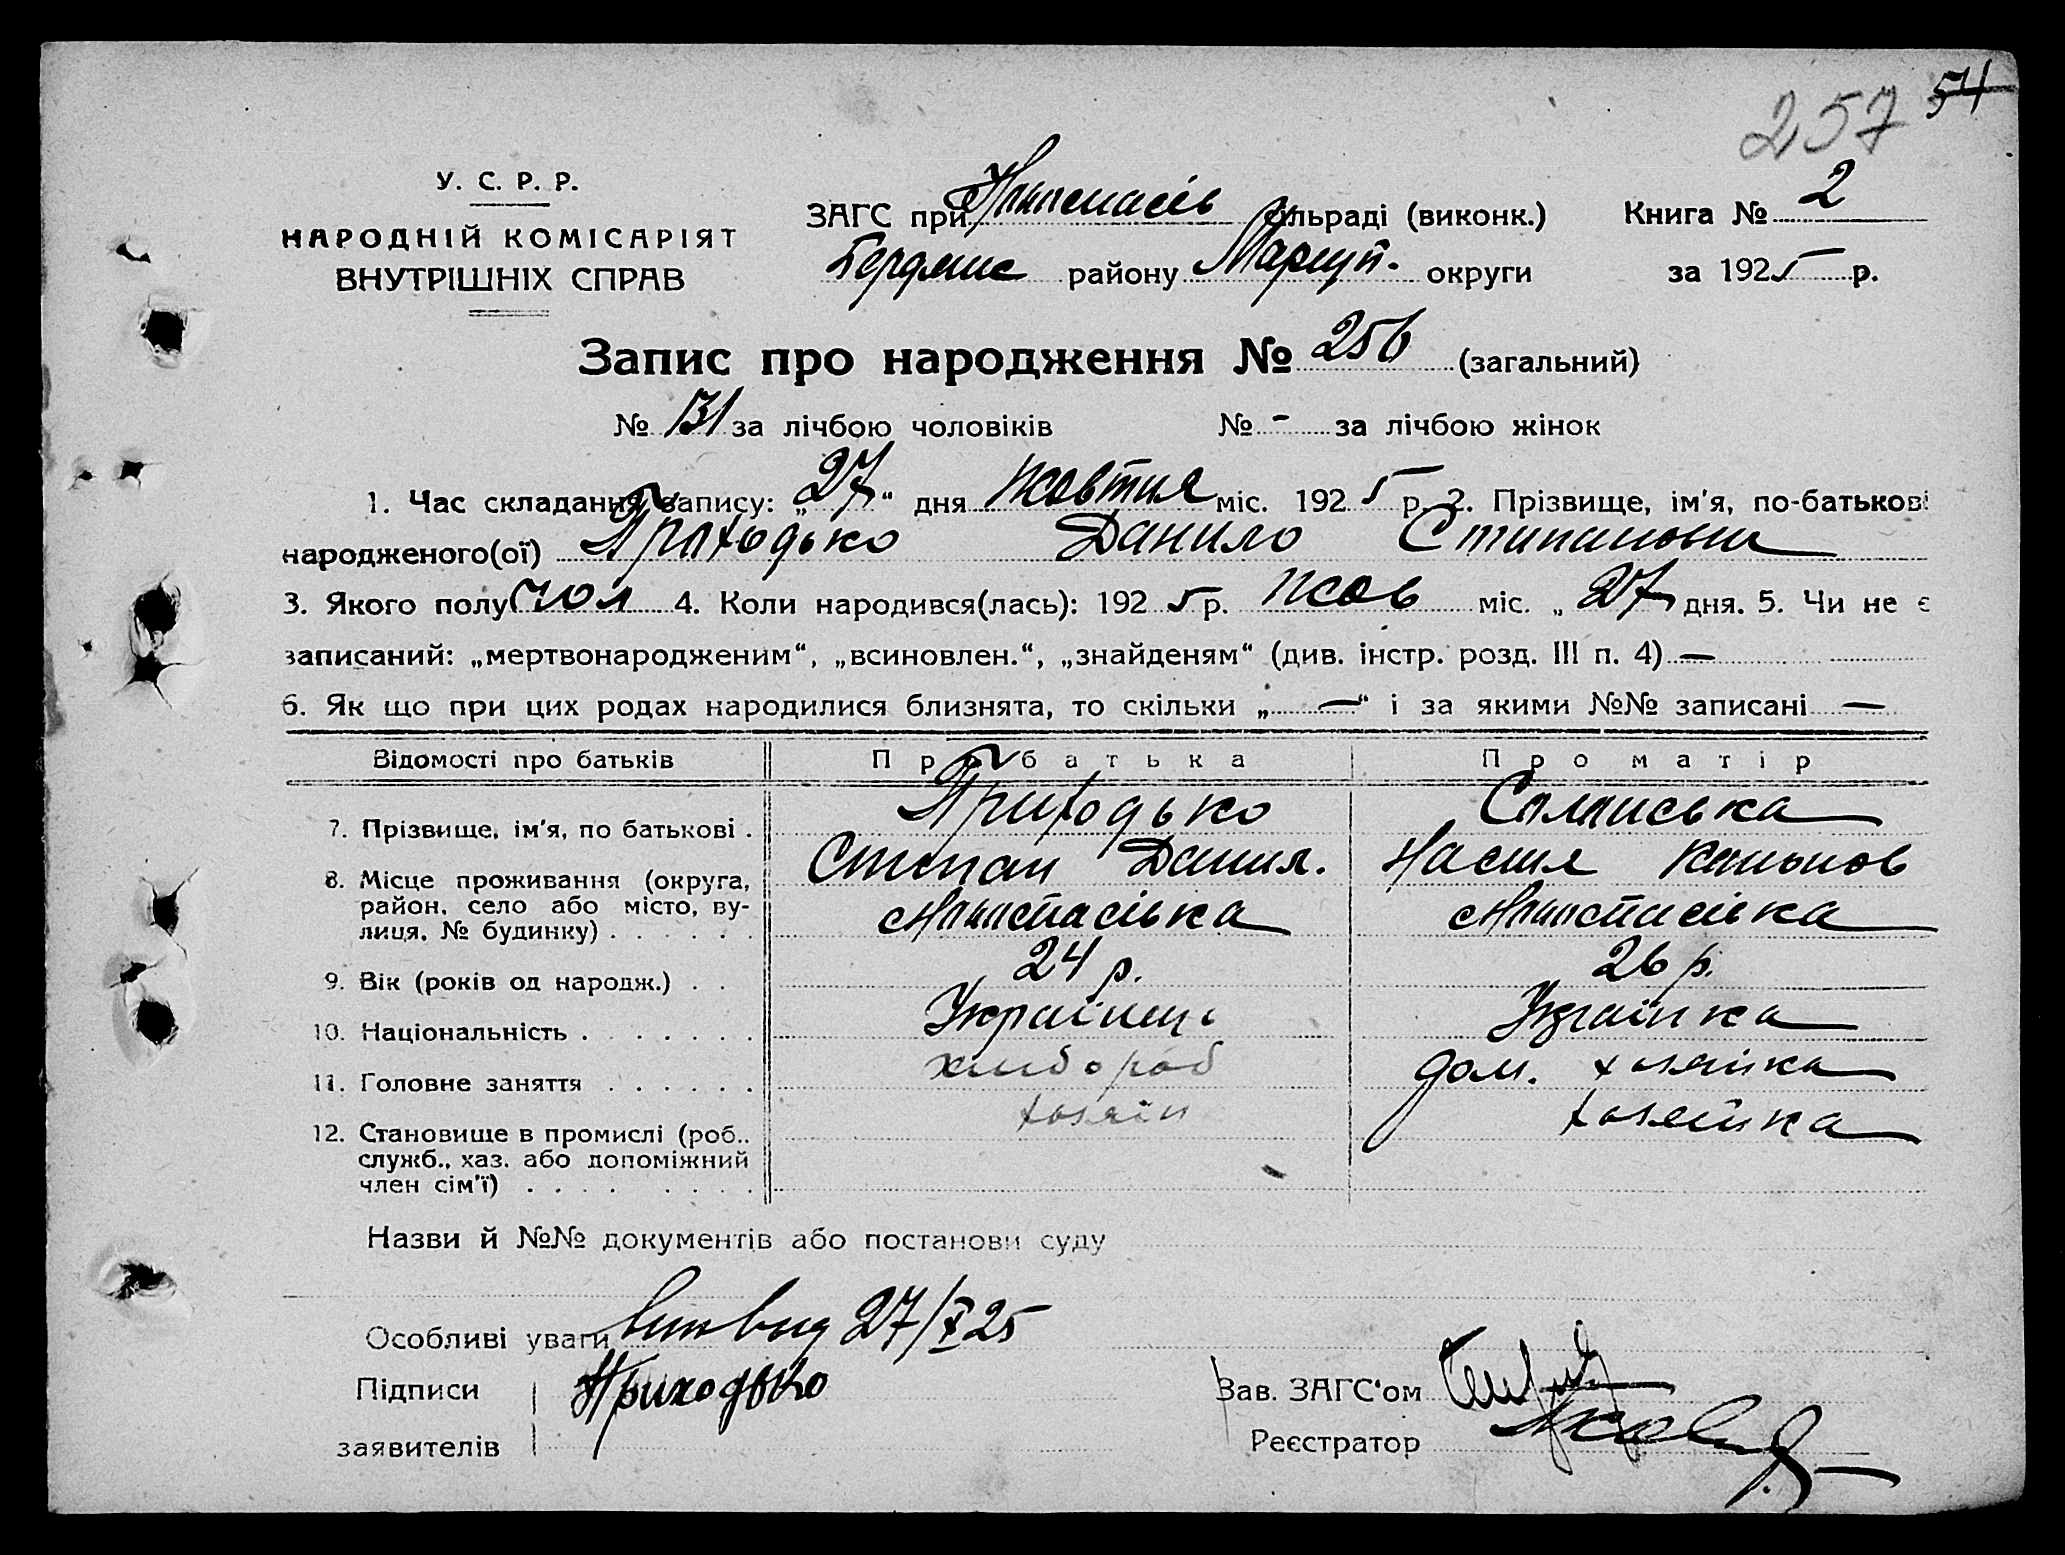 54
257
У. С. Р. Р.
НАРОДНІЙ КОМІСАРІЯТ
ВНУТРІШНІХ СПРАВ
ЗАГС при сільраді (виконк.) Книга № 2
Бердянс району Маріуп. округи за 1925 р.
Запис про народження № 256 (загальний)
№ 131 за лічбою чоловіків № - за лічбою жінок
1. Час складання запису: „27“ дня Жовтня міс. 1925 р. 2. Прізвище, ім'я, по-батькові
народженого(ої) Приходько Данило Стипанови
3. Якого полу чол 4. Коли народився(лась): 1925 р. Жов міс. „27 дня. 5. Чи не є
записаний: „мертвонародженим“, „всиновлен.“, „знайденям“ (див. інстр. розд. III п. 4) —
6. Як що при цих родах народилися близнята, то скільки „—“ і за якими №№ записані —
Відомості про батьків Про батька Про матір
7. Прізвище, ім'я, по батькові . Приходько
Степан Данил. Настя
8. Місце проживання (округа, район, село або місто, вулиця, № будинку) . . . . . .
9. Вік (років од народж.) . . 24 р. 26 р.
10. Національність . . . . . . . Українець Українка
11. Головне заняття . . . . . . хлібороб дом. хазяйка
12. Становище в промислі (роб.. служб., хаз. або допоміжний член сім'ї) . . . . . . . . хазяін хазяйка
Назви й №№ документів або постанови суду
Особливі уваги 27/X 25
Підписи Приходько Зав. ЗАГС'ом
заявителів Реєстратор